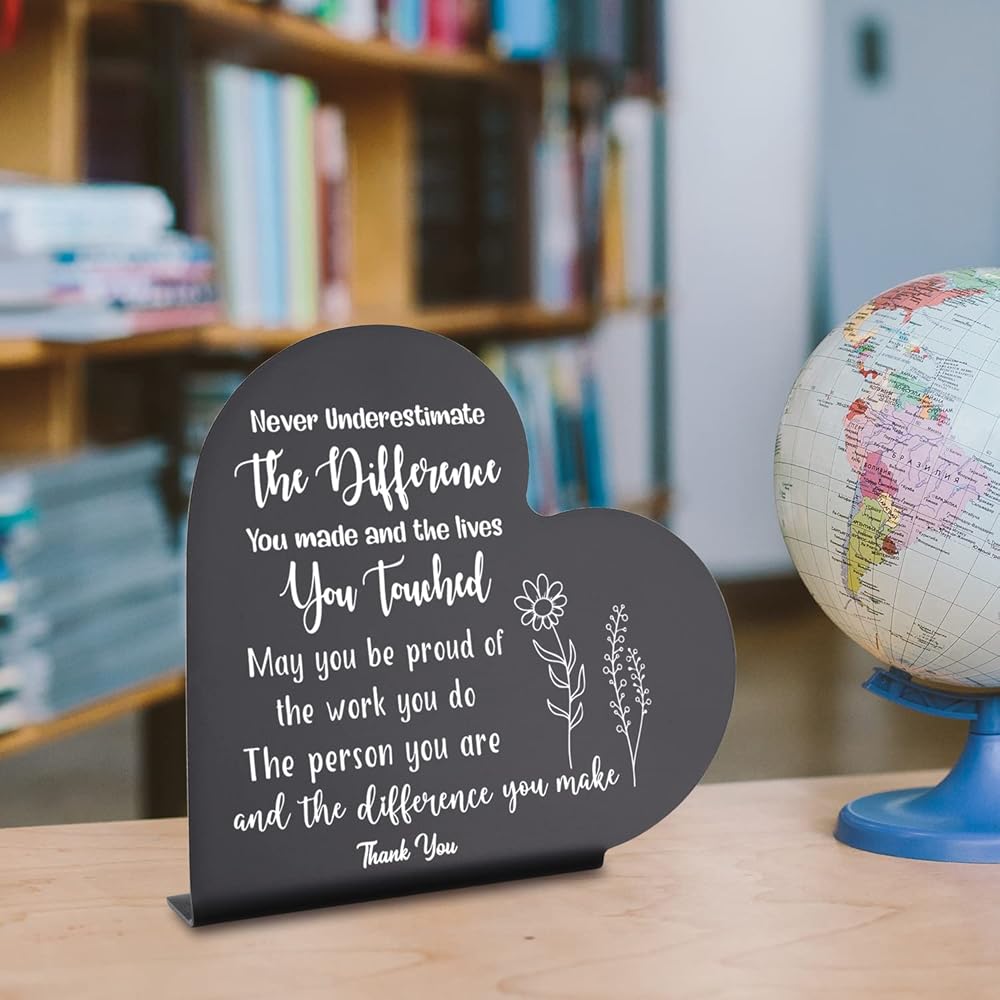 Never Underestimate
The Difference
You made and the lives
You Touched
May you be proud of
the work you do
The person you are
and the difference you make
Thank You
БРАЗИЛИЯ